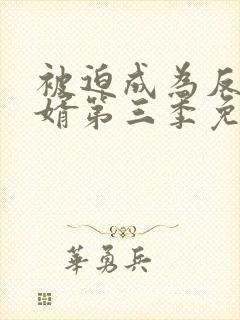 被迫成为反
婿第三季免
華勇兵